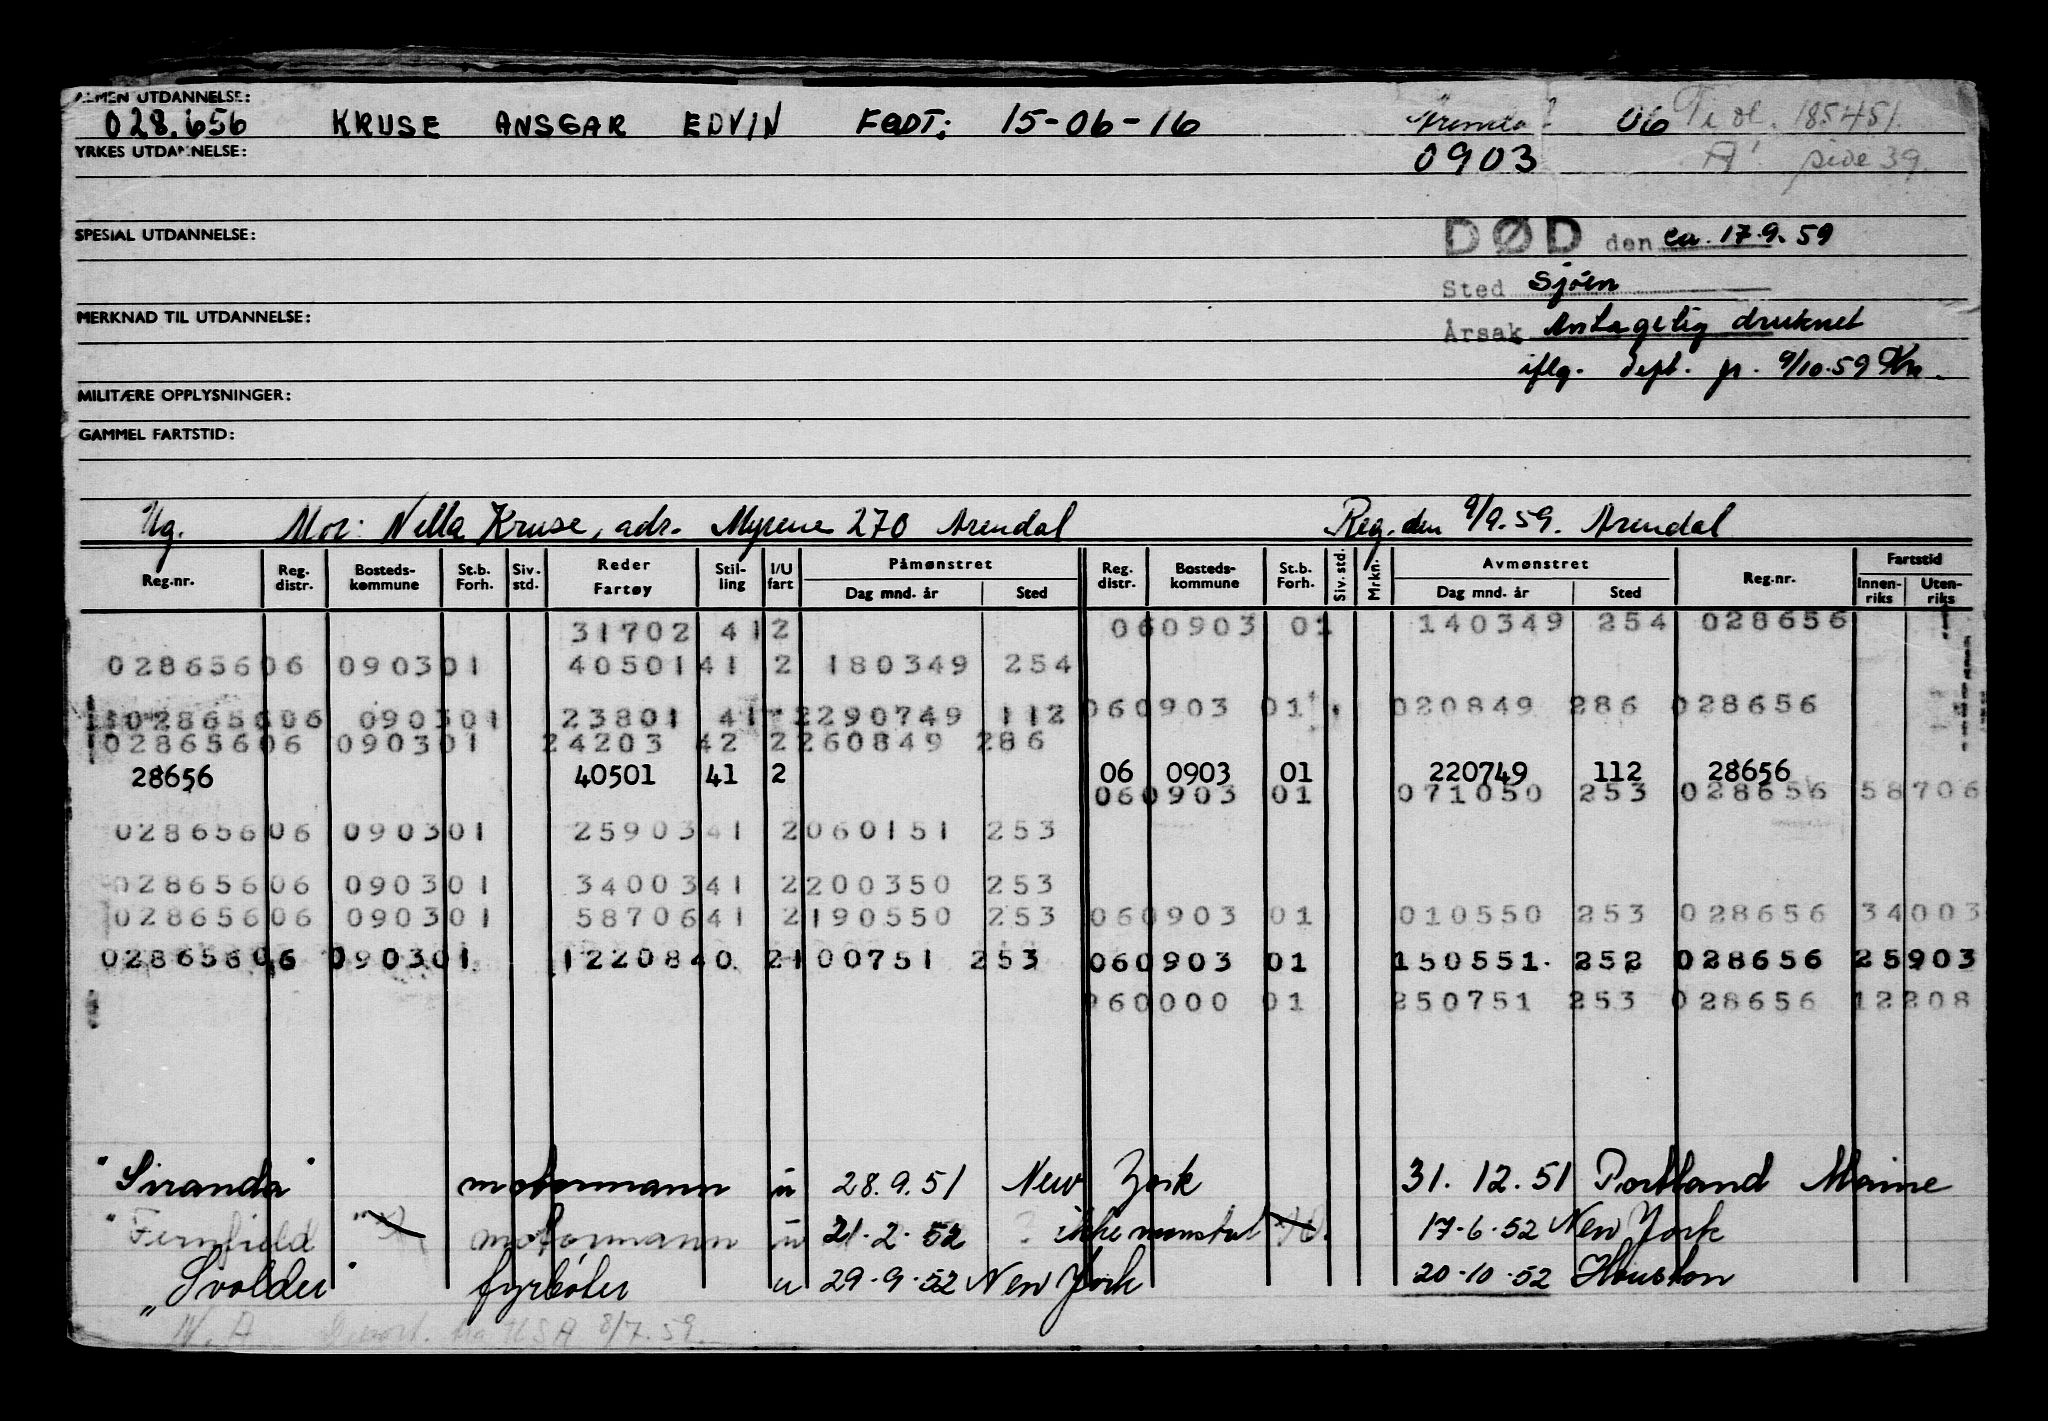 ALMEN UTDANNELSE:
028.656 KRUSE ANSGAR EDVIN FØDT: 15-06-16 06 185451.
YRKES UTDANNELSE: 0903 side 39.
SPESIAL UTDANNELSE: DØD den ca. 17.9.59
Sted Sjøen
MERKNAD TIL UTDANNELSE: Årsak Antagelig druknet
iflg. dept. 9/10-59
MILITÆRE OPPLYSNINGER:
GAMMEL FARTSTID:
Ug. Mor: Nella Kruse, adr. Myrene 270 Arendal Reg. den 9/9.59. Arendal
Reg.nr. Reg. distr. Bosteds- kommune St.b. Forh. Siv. std. Reder Fartøy Stil- ling I/U fart Påmønstret Dag mnd. år Sted Reg. distr. Bosteds- kommune St.b. Forh. Siv. std. Mrkn. Avmønstret Dag mnd. år Sted Reg.nr. Fartstid Innen- riks Uten- riks
31702 41 2 06 0903 01 140349 254 028656
028656 06 0903 01 40501 41 2 180349 254
028656 06 0903 01 23801 41 2 290749 112 06 0903 01 020849 286 028656
028656 06 0903 01 24203 42 2 260849 286
28656 40501 41 2 06 0903 01 220749 112 28656
06 0903 01 071050 253 028656 58706
028656 06 0903 01 25903 41 2 060151 253
028656 06 0903 01 34003 41 2 200350 253
028656 06 0903 01 58706 41 2 190550 253 06 0903 01 010550 253 028656 34003
028656 06 0903 01 12208 40 2 100751 253 06 0903 01 150551 252 028656 25903
060000 01 250751 253 028656 12208
"Siranda" motormann u 28.9.51 New York 31.12.51 Portland Maine
"Fernfield" motormann u 21.2.52 ? ikke mønstret 17-6-52 New York
"Svolder" fyrbøter u 29-9-52 New York 20-10-52 Houston
N.A. USA 8/7.59.